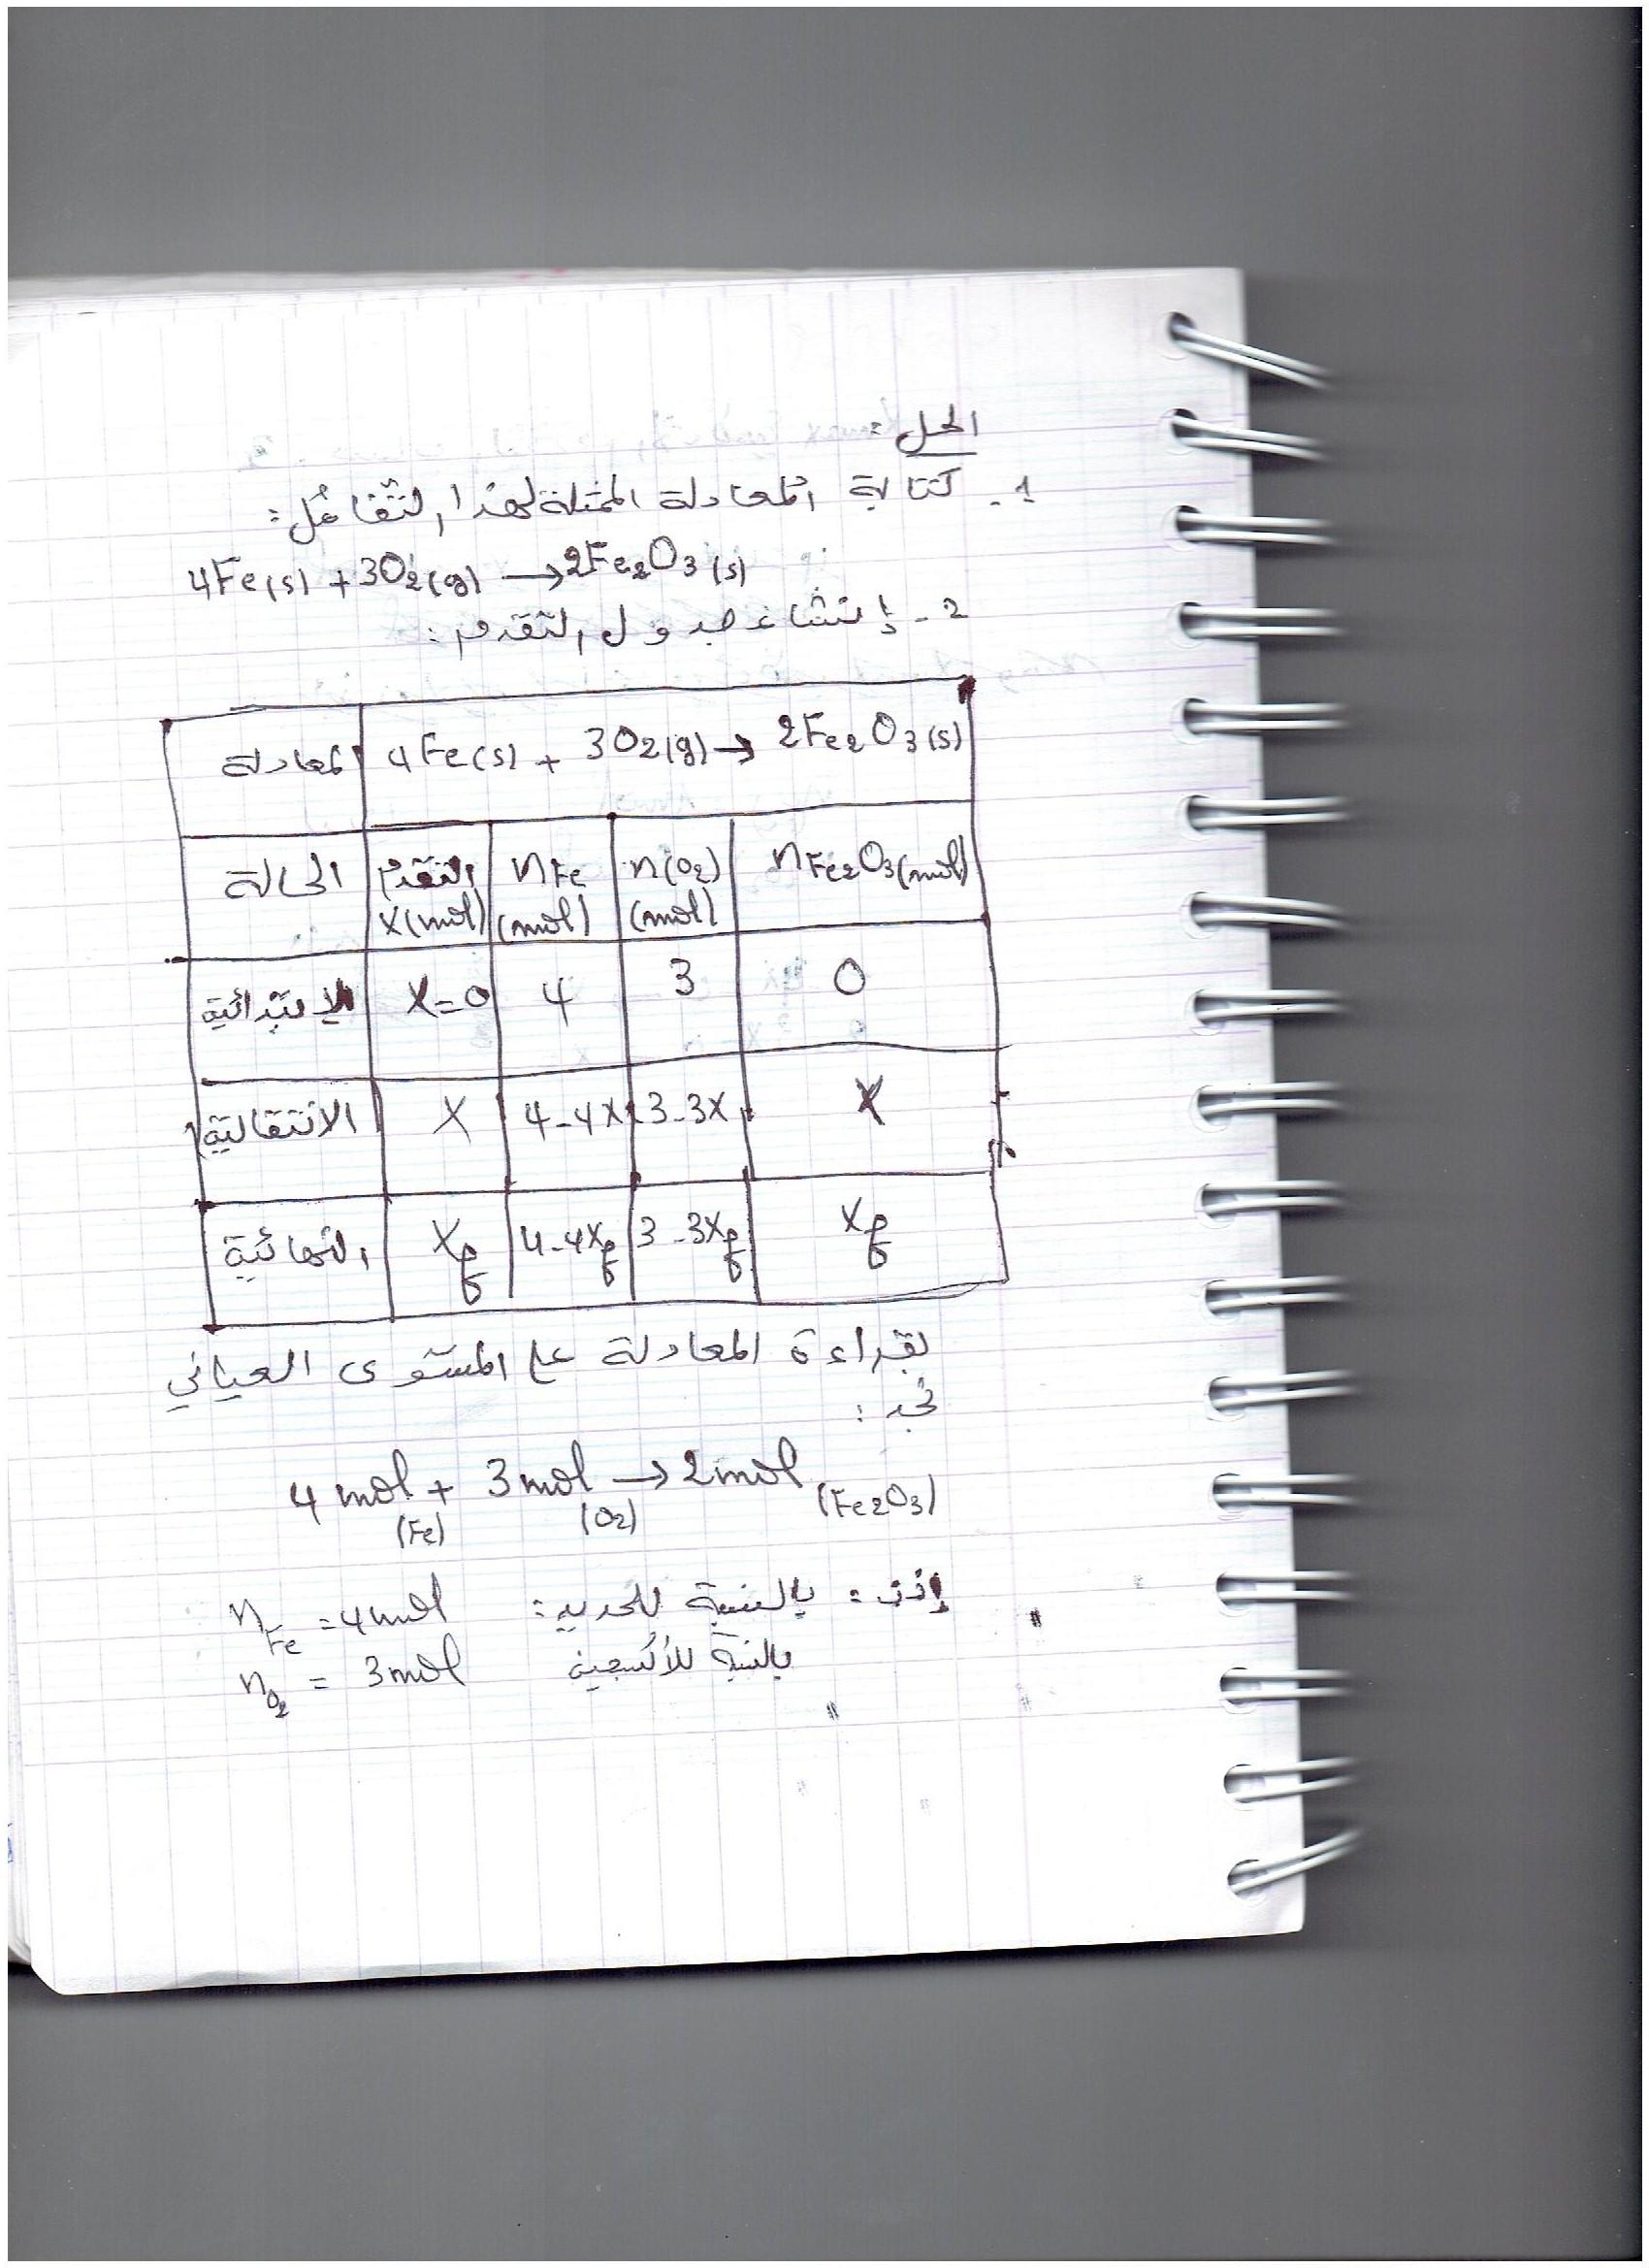 الحل :
1 - كتابة المعادلة الممثلة لهذا التفاعل :
4Fe(s) + 3O2(g) → 2Fe2O3(s)
2 - إنشاء جدول التقدم :
المعادلة 4Fe(s) + 3O2(g) → 2Fe2O3(s)
الحالة التقدم x(mol) nFe (mol) n(O2) (mol) nFe2O3(mol)
الابتدائية x=0 4 3 0
الانتقالية x 4-4x 3-3x x
النهائية xf 4-4xf 3-3xf xf
بقراءة المعادلة على المستوى العياني
نجد :
4 mol (Fe) + 3 mol (O2) → 2 mol (Fe2O3)
إذن : بالنسبة للحديد : nFe = 4 mol
بالنسبة للأكسجين nO2 = 3 mol